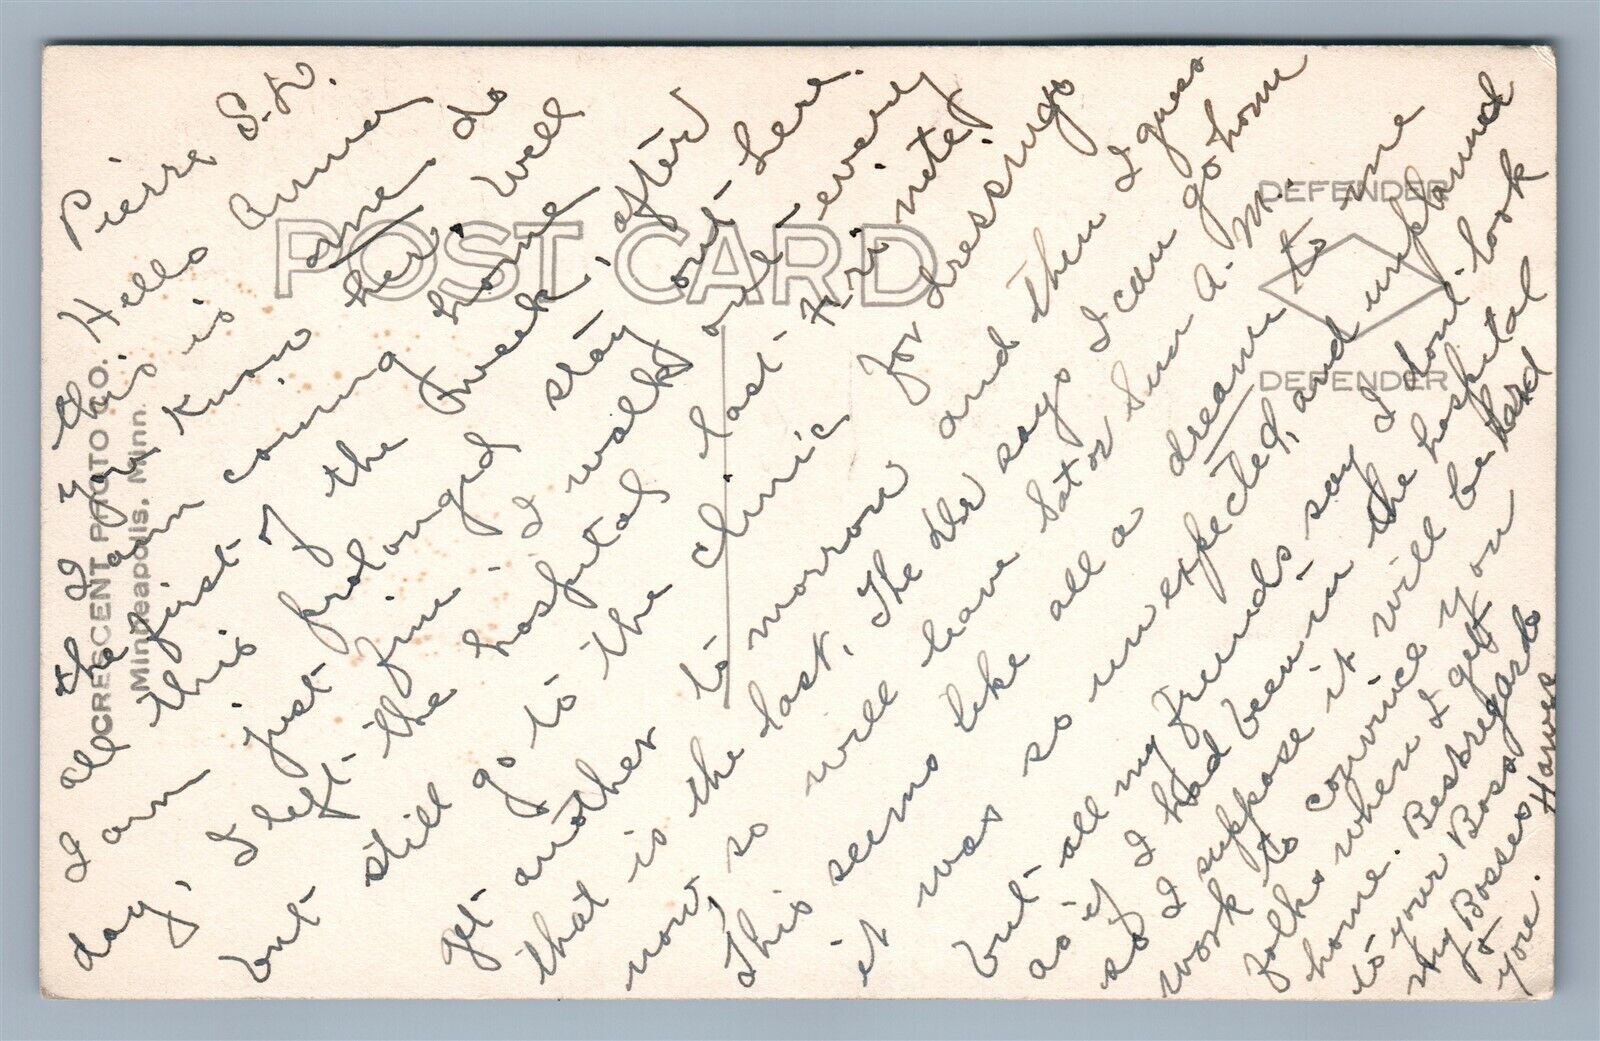 Pierre S.D.
Hello Anna
& if this is one do
I you know her. Well
the I am coming home
all first of the week, after
I am this prolonged stay out here.
day, just fine. I walk out every
I left the hospital last
but still go to the clinic for dressings
get another to morrow and then I guess
that is the last. The Drs says I can go home
now, so will leave Sat or Sun A.M.
This seems like all a dream to me
it was so unexpected, and unplanned
but all my friends say I dont look
as if I had been in the hospital
so I suppose it will be hard
work to convince you
folks when I get
home. Best regards
to your Boss
my Bosses
& you.
POST CARD
DEFENDER
DEFENDER
CRESCENT PHOTO CO.
Minneapolis, Minn.